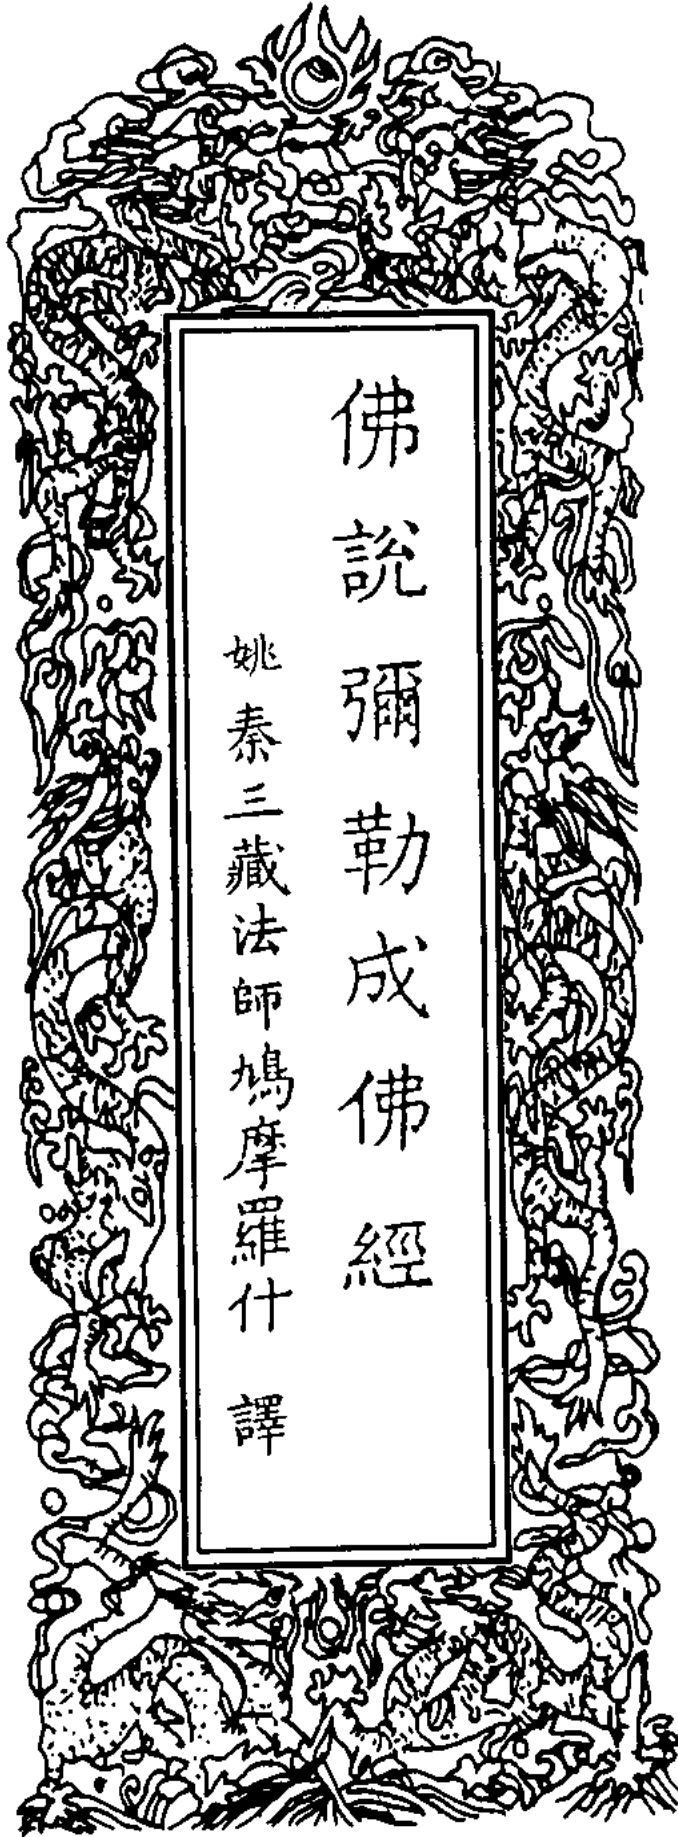 佛說彌勒成佛經
姚秦三藏法師鳩摩羅什 譯